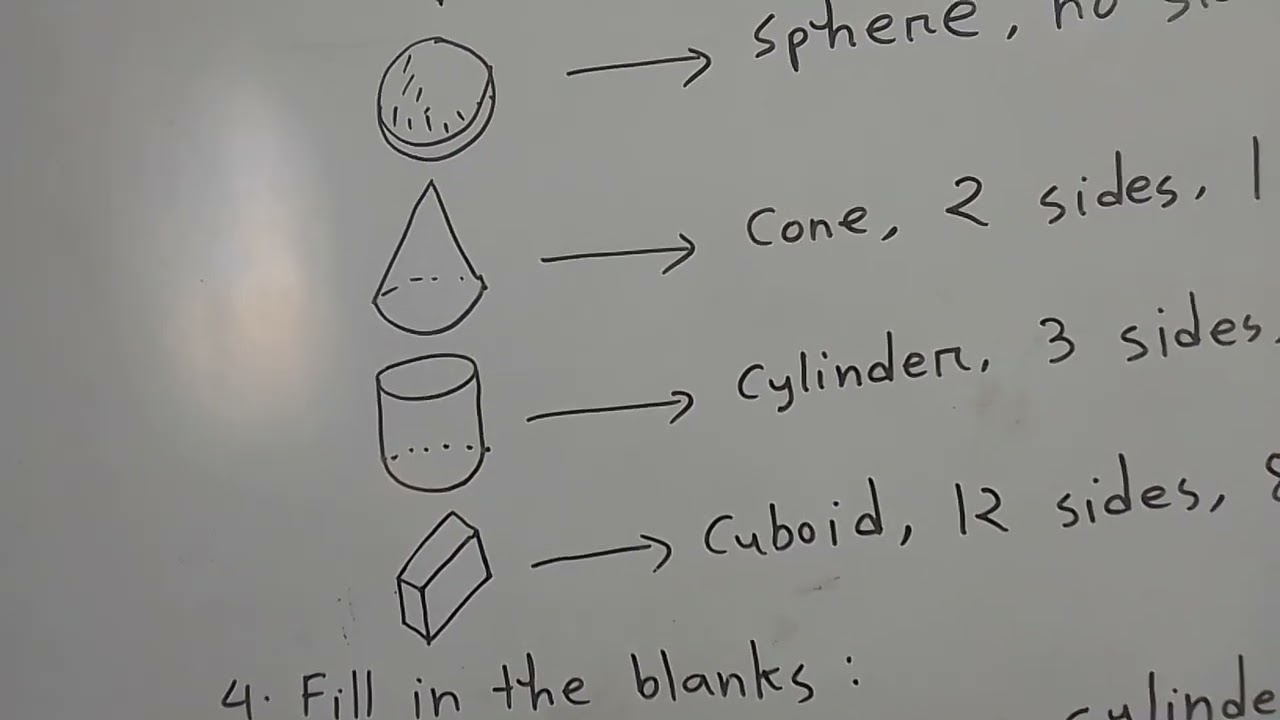 Sphere, no
Cone, 2 sides, 1
Cylinder, 3 sides,
Cuboid, 12 sides, 8
4. Fill in the blanks: